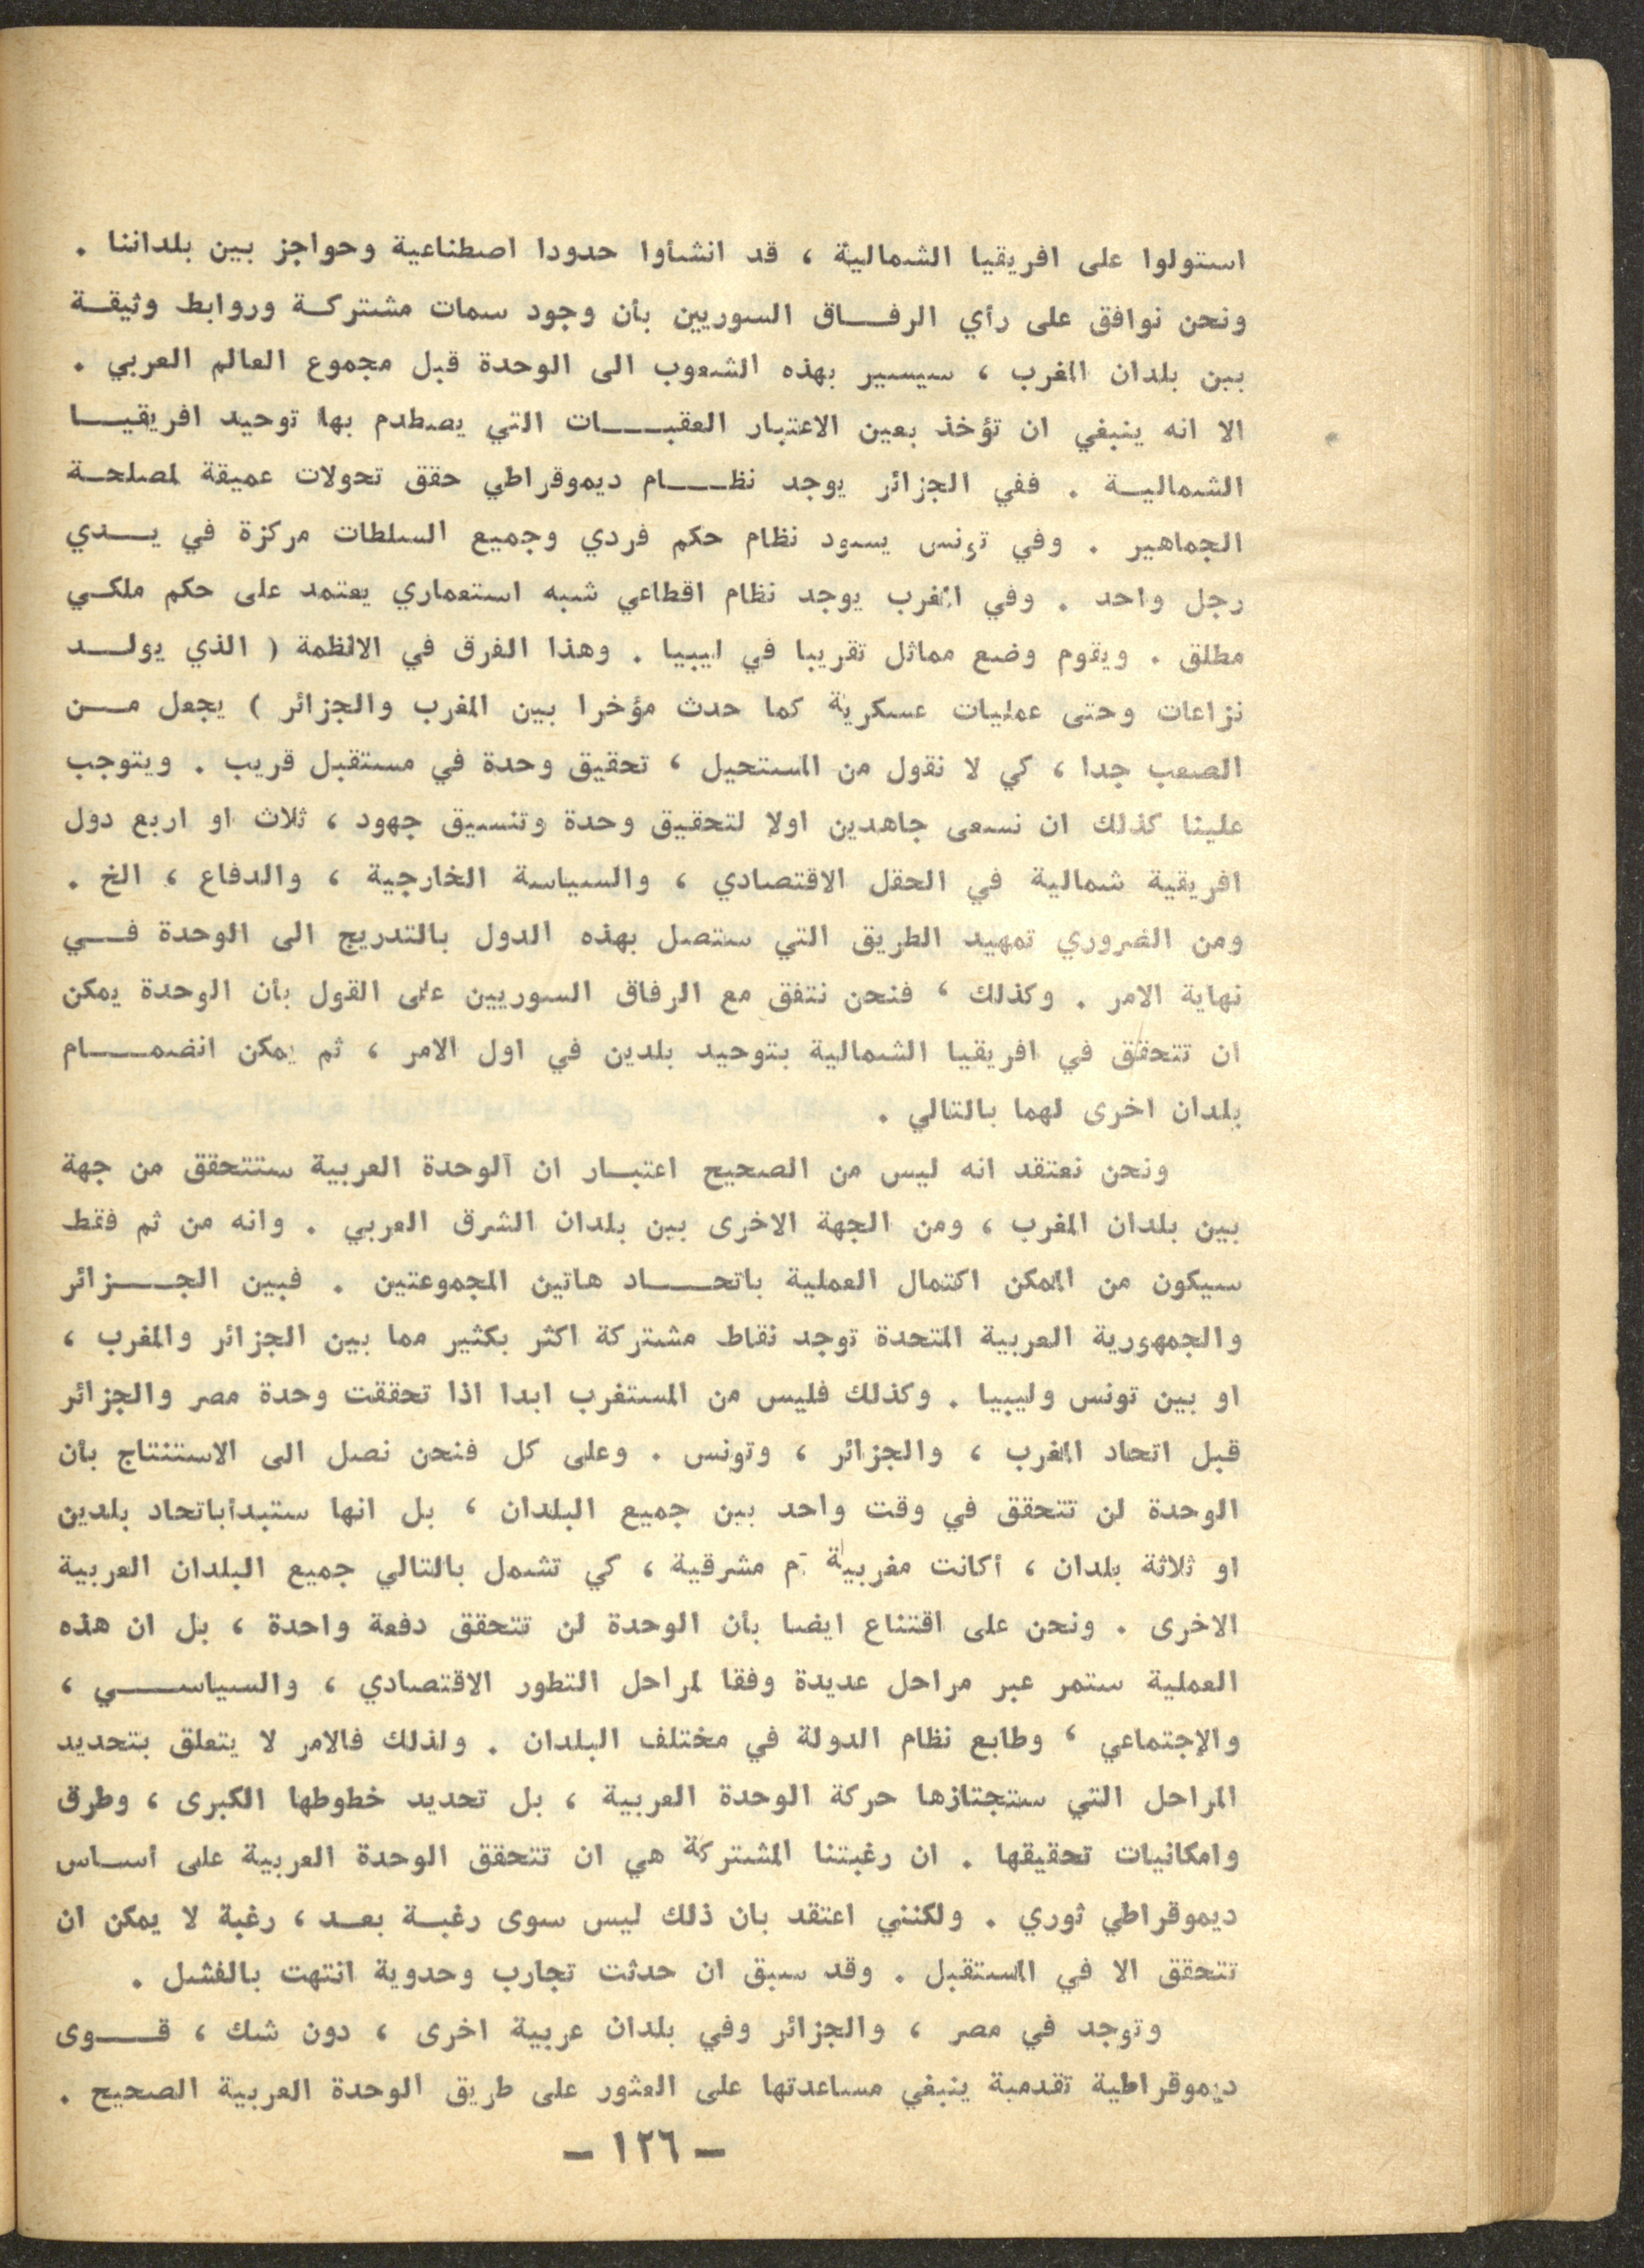 استولوا على افريقيا الشمالية ، قد انشأوا حدودا اصطناعية وحواجز بين بلداننا .
ونحن نوافق على رأي الرفـــاق السوريين بأن وجود سمات مشتركـة وروابط وثيقـة
بين بلدان المغرب ، سيسير بهذه الشعوب الى الوحدة قبل مجموع العالم العربي .
الا انه ينبغي ان تؤخذ بعين الاعتبار العقبـــات التي يصطدم بها توحيد افريقيـــا
الشماليـة . ففي الجزائر يوجد نظـــام ديموقراطي حقق تحولات عميقة لمصلحـة
الجماهير . وفي تونس يسود نظام حكم فردي وجميع السلطات مركزة في يـــدي
رجل واحد . وفي المغرب يوجد نظام اقطاعي شبه استعماري يعتمد على حكم ملكـي
مطلق . ويقوم وضع مماثل تقريبا في ليبيا . وهذا الفرق في الانظمة ( الذي يولـــد
نزاعات وحتى عمليات عسكرية كما حدث مؤخرا بين المغرب والجزائر ) يجعل مـــن
الصعب جدا ، كي لا نقول من المستحيل ، تحقيق وحدة في مستقبل قريب . ويتوجب
علينا كذلك ان نسعى جاهدين اولا لتحقيق وحدة وتنسيق جهود ، ثلاث او اربع دول
افريقية شمالية في الحقل الاقتصادي ، والسياسة الخارجية ، والدفاع ، الخ .
ومن الضروري تمهيد الطريق التي ستصل بهذه الدول بالتدريج الى الوحدة فـــي
نهاية الامر . وكذلك ، فنحن نتفق مع الرفاق السوريين على القول بأن الوحدة يمكن
ان تتحقق في افريقيا الشمالية بتوحيد بلدين في اول الامر ، ثم يمكن انضمـــام
بلدان اخرى لهما بالتالي .
ونحن نعتقد انه ليس من الصحيح اعتبـار ان الوحدة العربية ستتحقق من جهة
بين بلدان المغرب ، ومن الجهة الاخرى بين بلدان الشرق العربي . وانه من ثم فقط
سيكون من الممكن اكتمال العملية باتحـــاد هاتين المجموعتين . فبين الجـــزائر
والجمهورية العربية المتحدة توجد نقاط مشتركة اكثر بكثير مما بين الجزائر والمغرب ،
او بين تونس وليبيا . وكذلك فليس من المستغرب ابدا اذا تحققت وحدة مصر والجزائر
قبل اتحاد المغرب ، والجزائر ، وتونس . وعلى كل فنحن نصل الى الاستنتاج بأن
الوحدة لن تتحقق في وقت واحد بين جميع البلدان ، بل انها ستبدأباتحاد بلدين
او ثلاثة بلدان ، أكانت مغربية م مشرقية ، كي تشمل بالتالي جميع البلدان العربية
الاخرى . ونحن على اقتناع ايضا بأن الوحدة لن تتحقق دفعة واحدة ، بل ان هذه
العملية ستمر عبر مراحل عديدة وفقا لمراحل التطور الاقتصادي ، والسياســـي ،
والاجتماعي ، وطابع نظام الدولة في مختلف البلدان . ولذلك فالامر لا يتعلق بتحديد
المراحل التي ستجتازها حركة الوحدة العربية ، بل تحديد خطوطها الكبرى ، وطرق
وامكانيات تحقيقها . ان رغبتنا المشتركة هي ان تتحقق الوحدة العربية على أسـاس
ديموقراطي ثوري . ولكنني اعتقد بان ذلك ليس سوى رغبـة بعـد ، رغبة لا يمكن ان
تتحقق الا في المستقبل . وقد سبق ان حدثت تجارب وحدوية انتهت بالفشل .
وتوجد في مصر ، والجزائر وفي بلدان عربية اخرى ، دون شك ، قـــوى
ديموقراطية تقدمية ينبغي مساعدتها على العثور على طريق الوحدة العربية الصحيح .
– ١٢٦ –